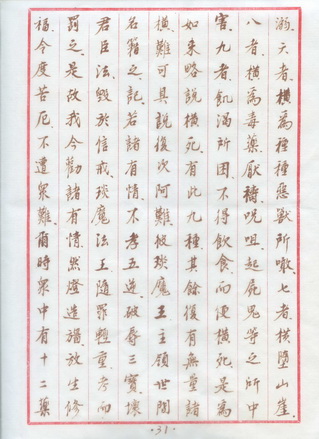 溺六者橫爲種種惡獸所噉七者橫墮山崖
八者橫爲毒藥厭禱呪咀起屍鬼等之所中
害九者飢渴所困不得飲食而便橫死是爲
如來略說橫死有此九種其餘復有無量諸
橫難可具說復次阿難彼琰魔王主領世間
名籍之記若諸有情不孝五逆破辱三寶壞
君臣法毀於信戒琰魔法王隨罪輕重考而
罰之是故我今勸諸有情然燈造旛放生修
福令度苦厄不遭衆難爾時衆中有十二藥
·31·